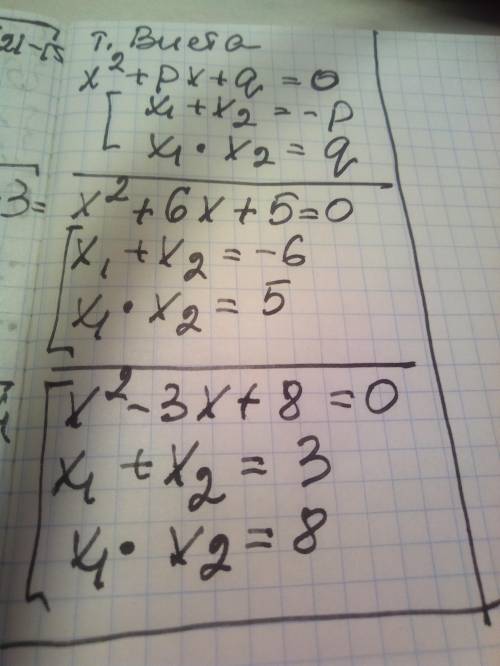 21-15
т. Виета
x² + px + q = 0
x₁ + x₂ = -p
x₁ · x₂ = q
3=
x² + 6x + 5 = 0
x₁ + x₂ = -6
x₁ · x₂ = 5
x² - 3x + 8 = 0
x₁ + x₂ = 3
x₁ · x₂ = 8